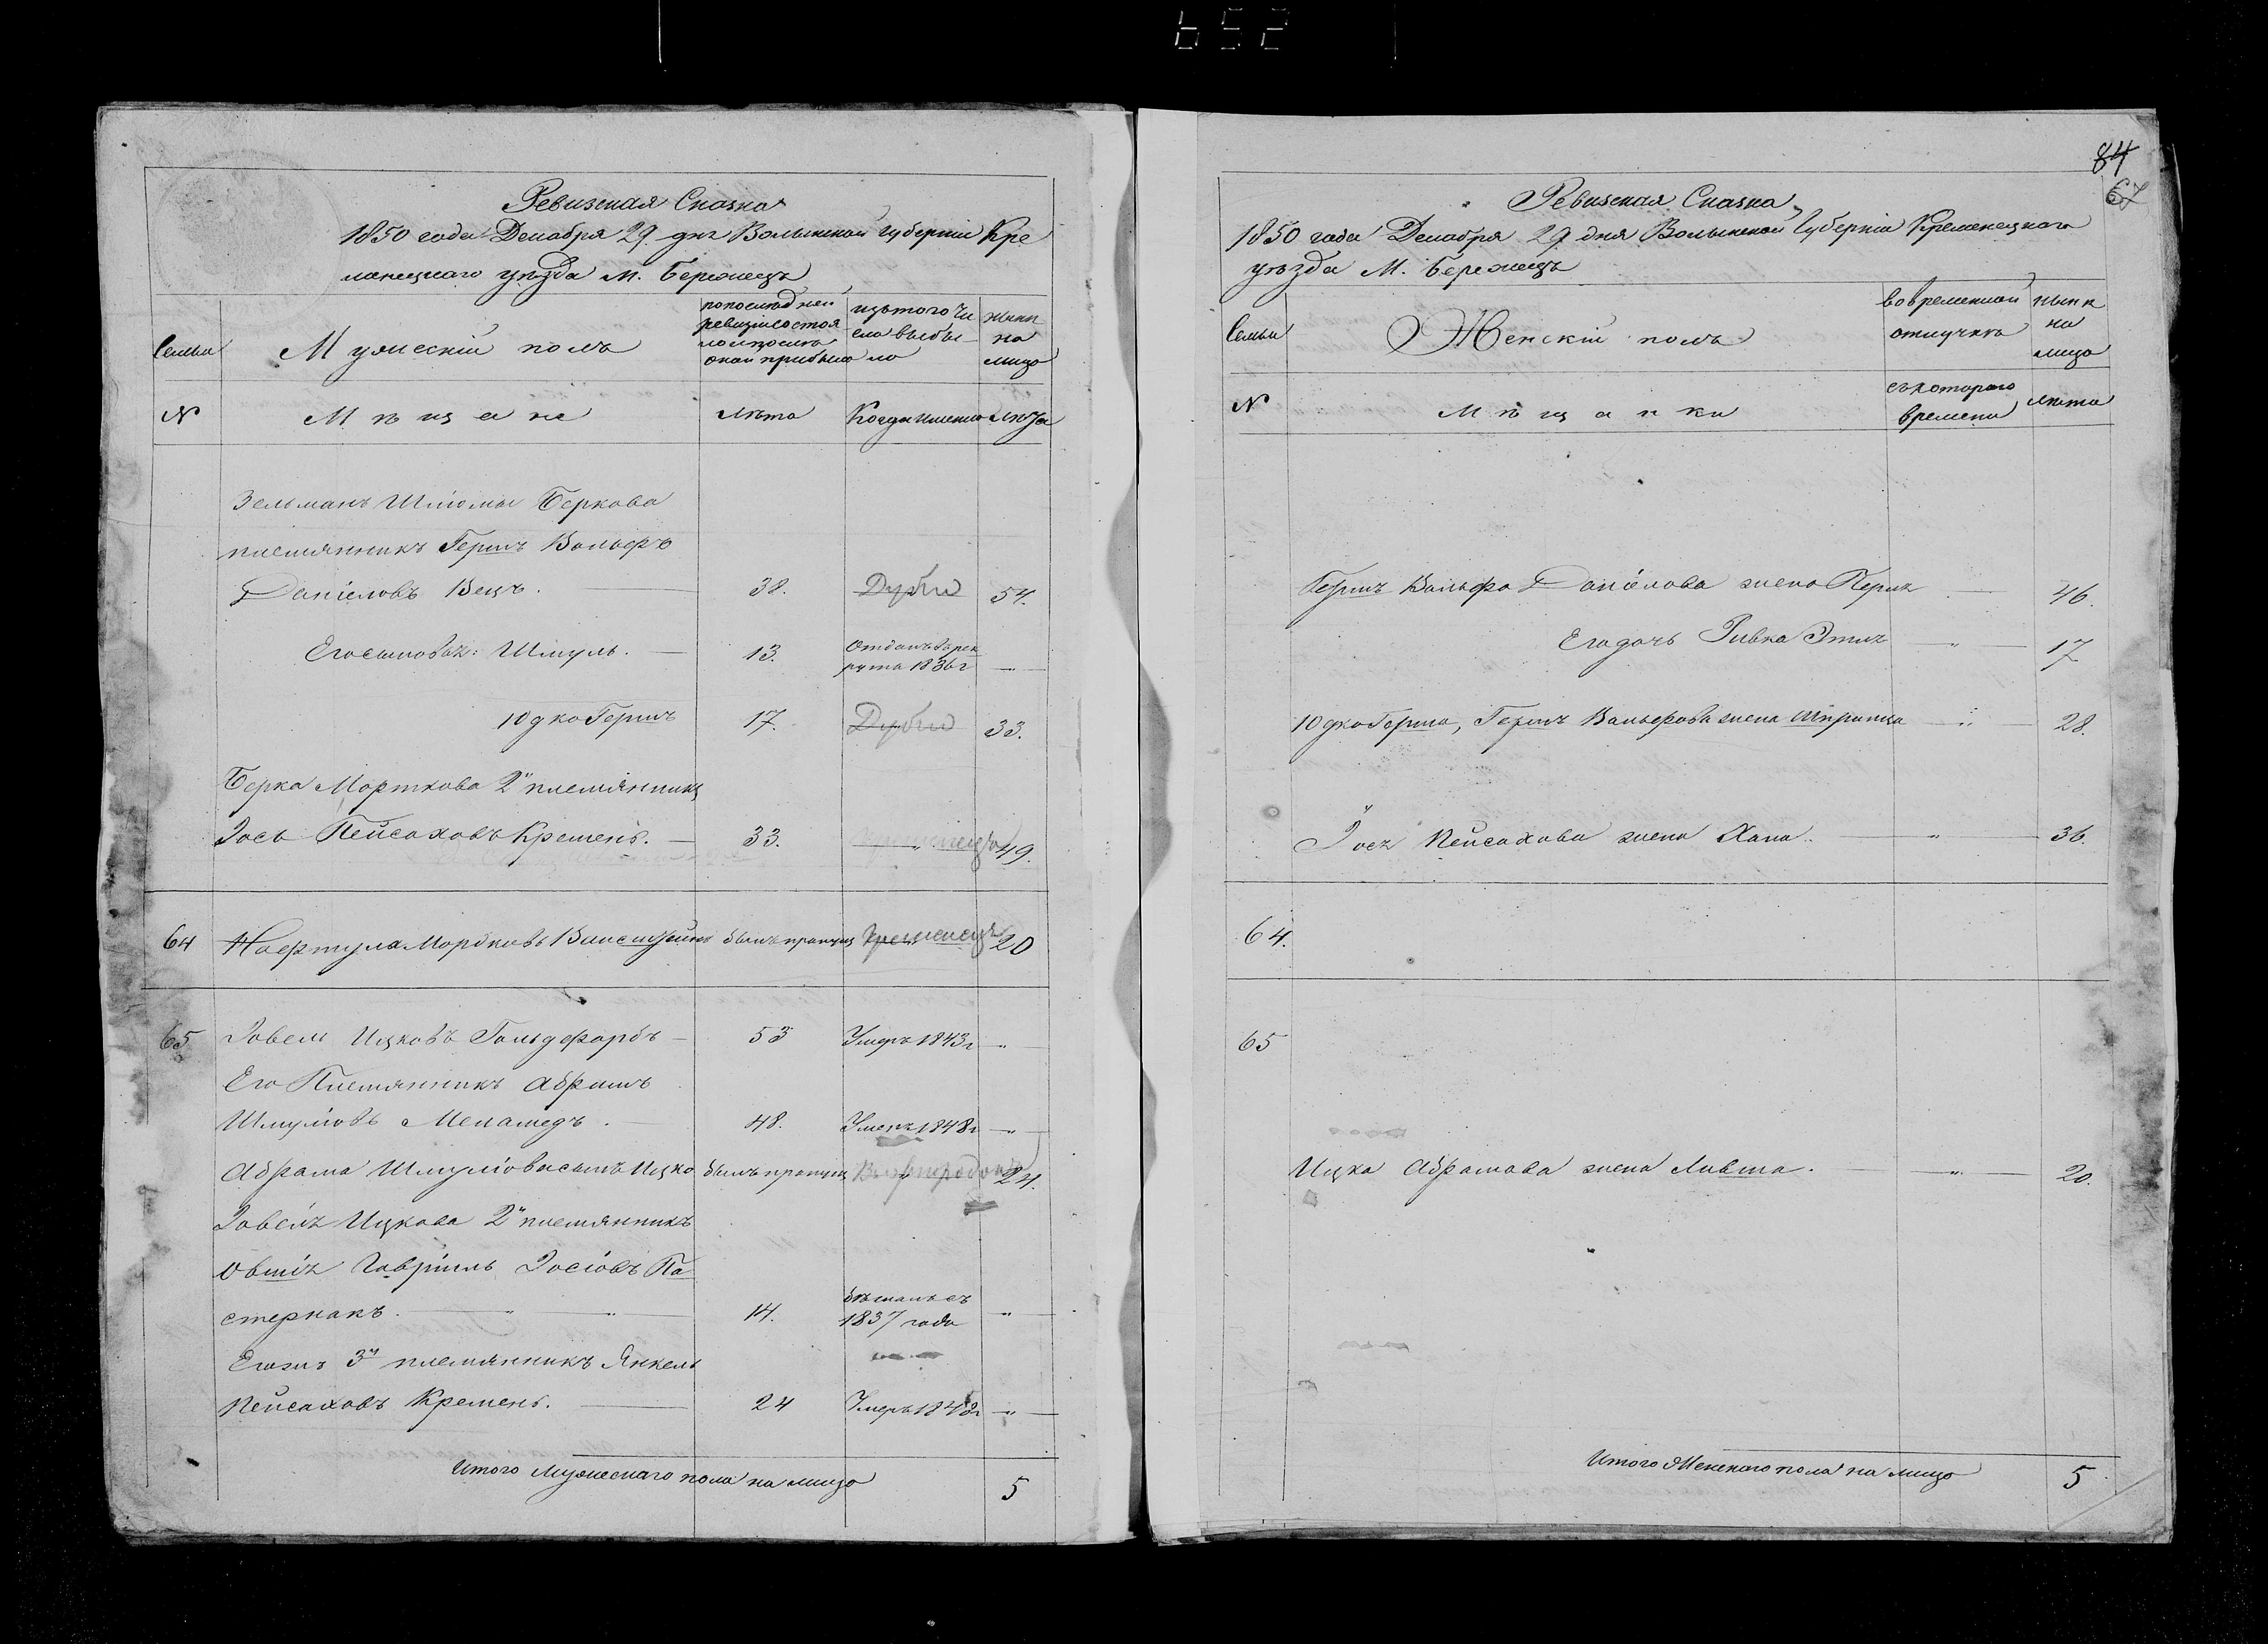 652
Ревизская Сказка
1850 года Декабря 29 дня Волынской Губернии Кре
менецкаго уѣзда М. Бережецъ
Семьи
Мужескій полъ
по последней
ревизіи состоя
ло и после
оной прибыло
изъ того чи
сла выбы
ло
нынѣ
на
лицо
N
Мѣщане
Лѣта
Когда именно
Лѣта
Зельманъ Шліомы Беркова
племянникъ Гершъ Вольфъ
Даніеловъ Вецъ.
38.
Дубно
54.
Его сыновья: Шмуль.
13.
Отданъ въ рек
руты 1836 г
"
Юдко Гершъ
17.
Дубно
33.
Берка Морткова 2й племянникъ
Іось Пейсаховъ Кремень.
33.
"
49.
64
Нафтула Мордковъ Ваисштейнъ
былъ пропущ
Кременецъ
20
65
Іовель Ицковъ Гольдфарбъ
53
Умеръ 1843 г
"
Его Племянникъ Абрамъ
Шмуліовъ Меламедъ.
48.
Умеръ 1848 г
"
Абрама Шмуліова сынъ Ицко
былъ пропущ
24.
Іовеля Ицкова 2й племянникъ
Овшія Гаврииль Іосіовъ Па
стернакъ.
" "
14.
бѣжалъ съ
1837 года
"
Его жъ 3й племянникъ Янкель
Пейсаховъ Кремень.
24
Умеръ 1848 г
"
Итого Мужескаго пола на лицо
5
84
67
Ревизская Сказка
1850 года Декабря 29 дня Волынской Губерніи Кременецкаго
уѣзда М. Бережецъ
Семьи
Женскій полъ
во временной
отлучкѣ
нынѣ
на
лицо
N
Мѣщанки
съ котораго
времени
лѣта
Гершъ Вольфа Даніелова жена Перля
46.
Его дочь Ривка Этля
"
17
Юдко Герша, Гершъ Вольфова жена Шпринца
"
28.
Іося Пейсахова жена Хана.
"
36.
64.
65
Ицка Абрамова жена Ливша.
"
20.
Итого Женскаго пола на лицо
5